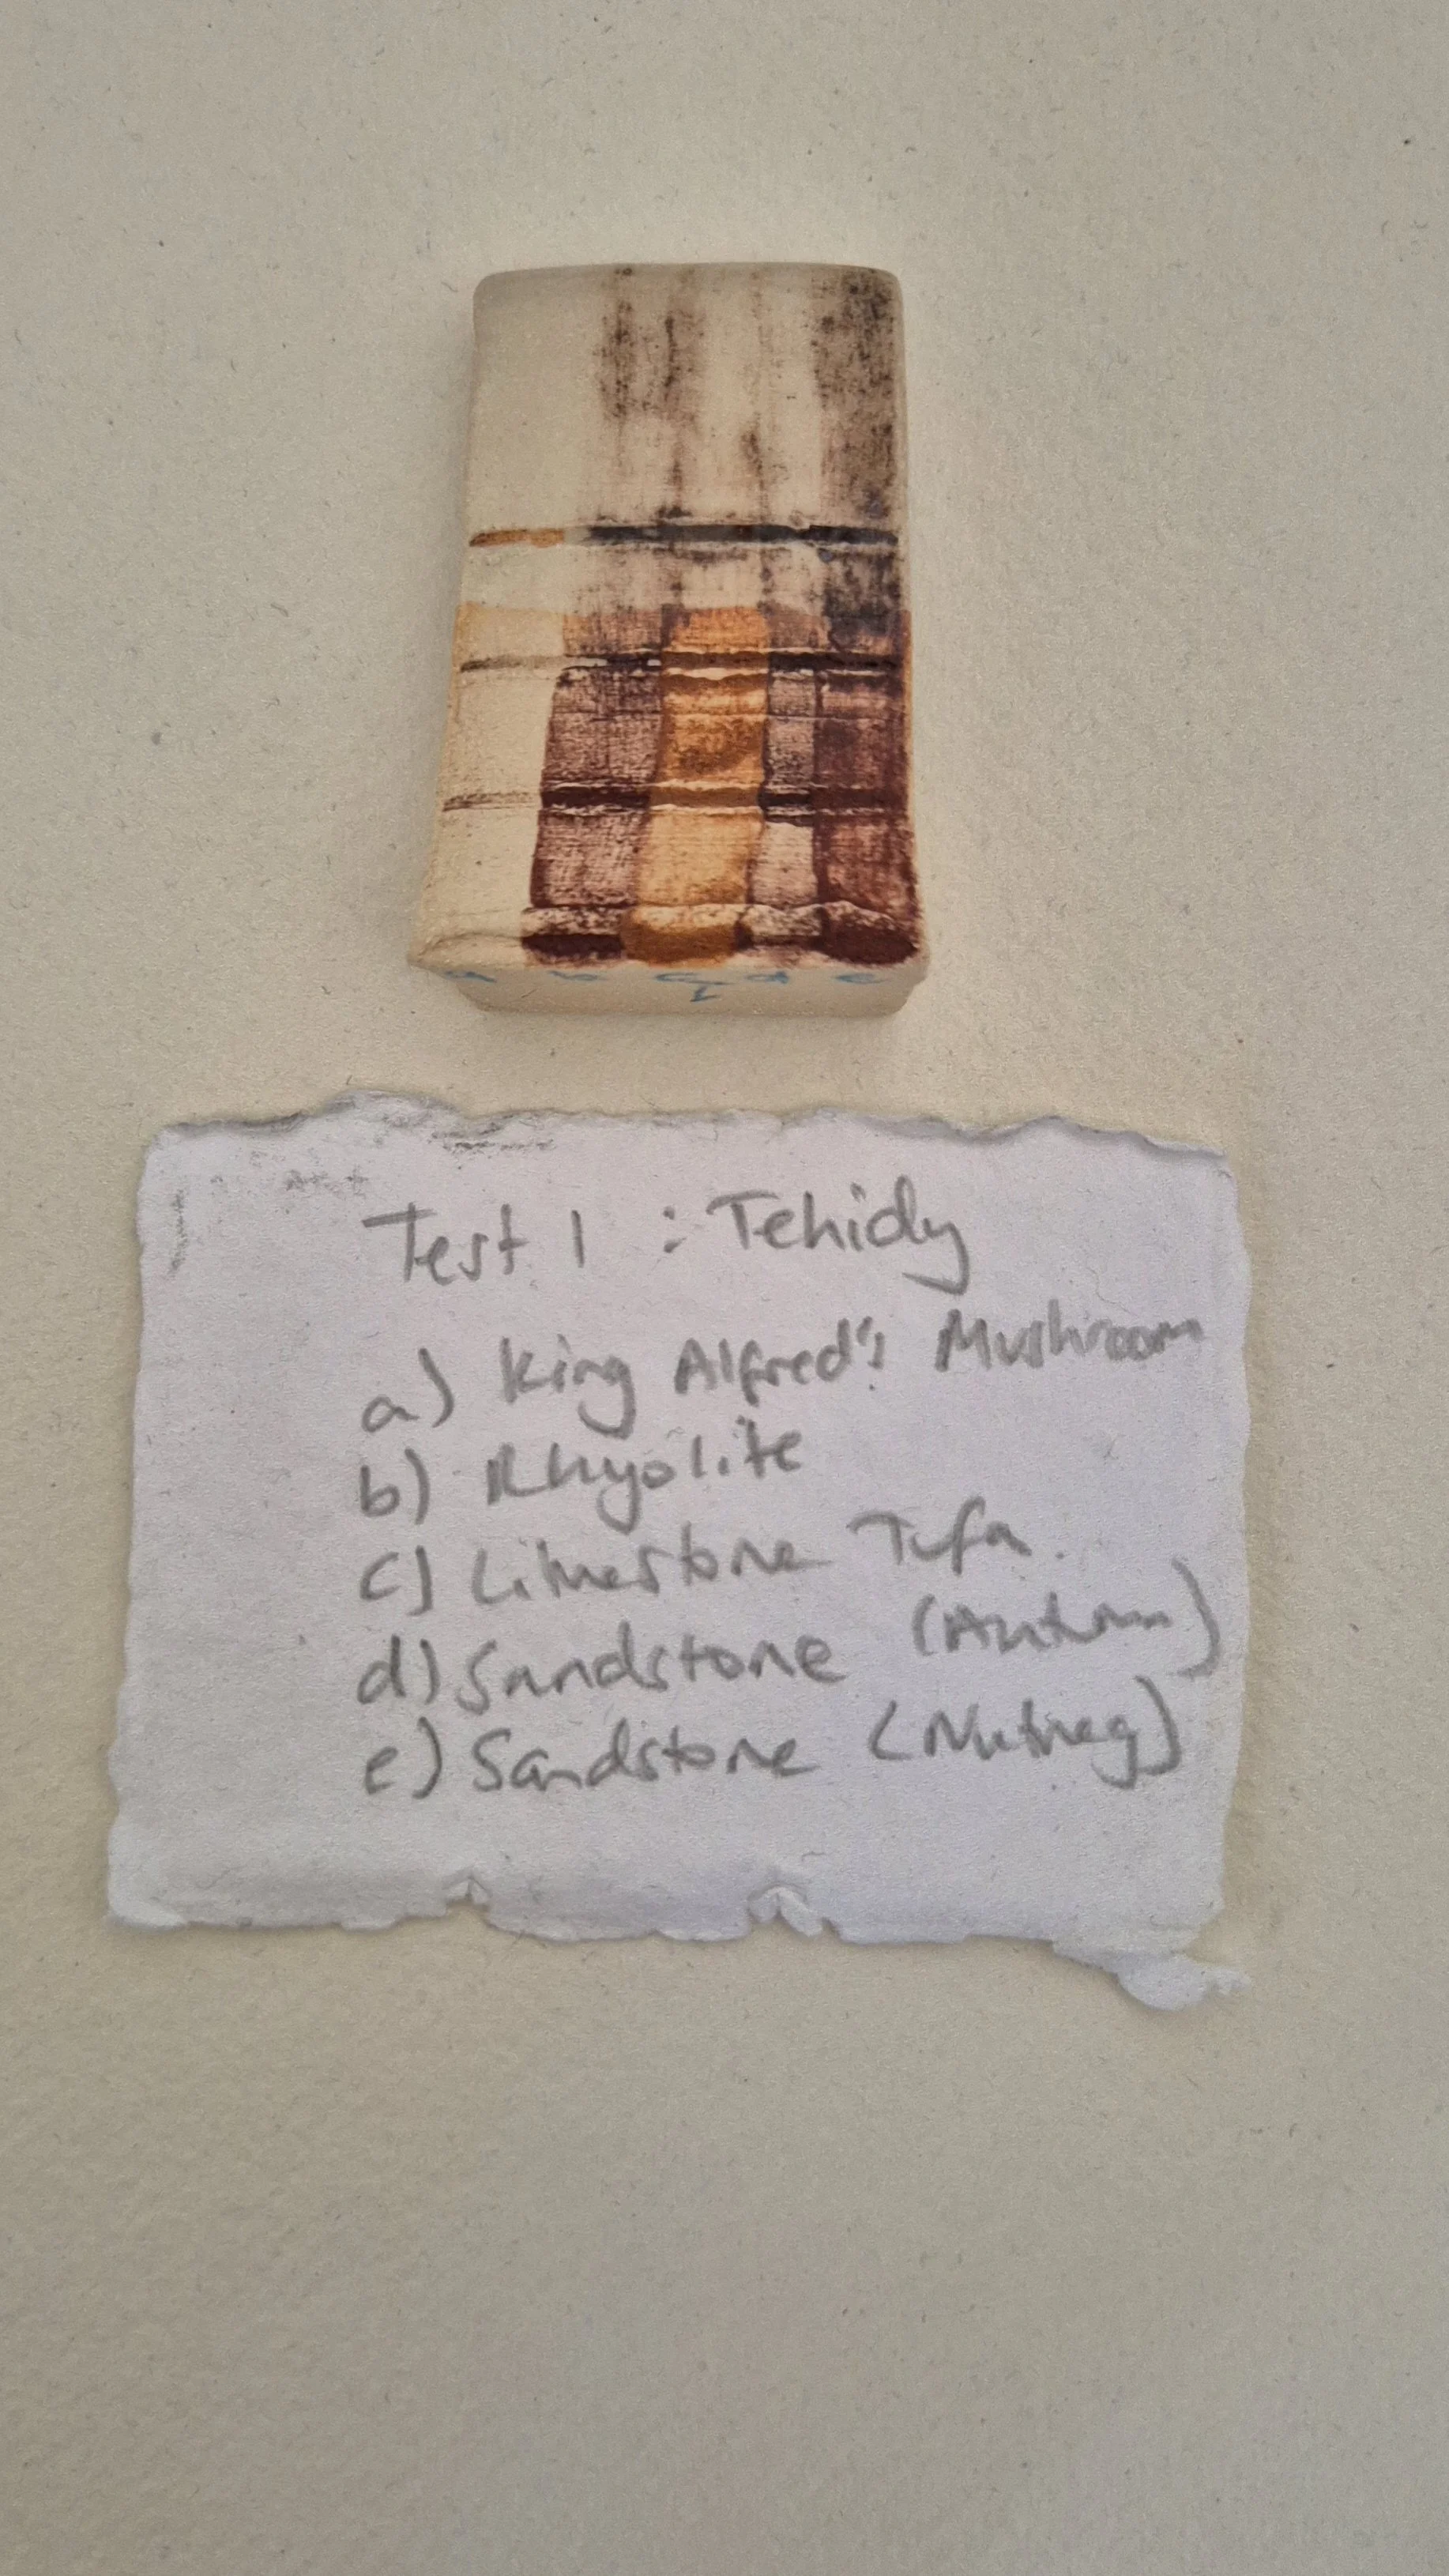 a b c d e
1
Test 1 : Tehidy
a) King Alfred's Mushroom
b) Rhyolite
c) Limestone Tufa
d) Sandstone (Autumn)
e) Sandstone (Nutmeg)